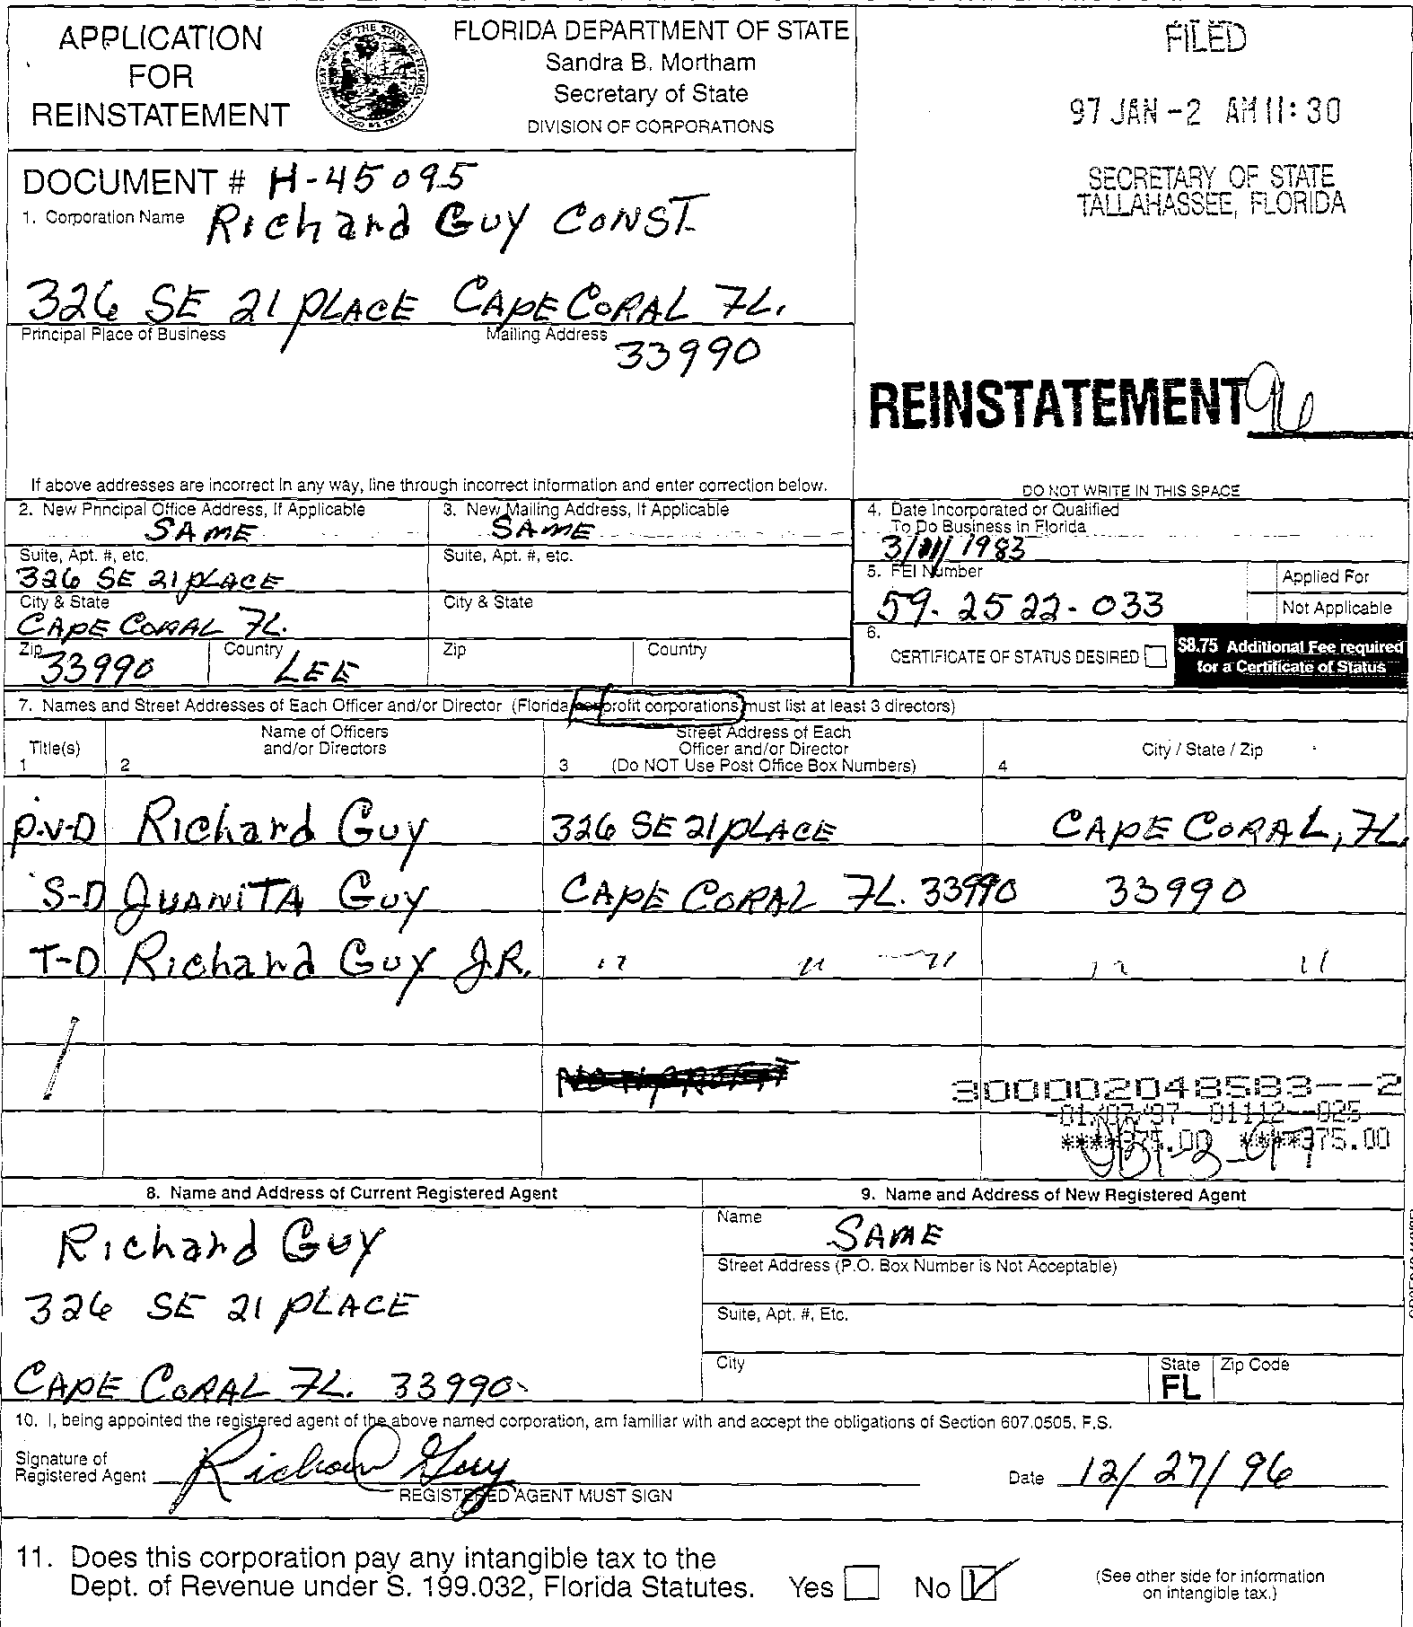 APPLICATION
FOR
REINSTATEMENT
FLORIDA DEPARTMENT OF STATE
Sandra B. Mortham
Secretary of State
DIVISION OF CORPORATIONS
FILED
97 JAN -2 AM 11:30
SECRETARY OF STATE
TALLAHASSEE, FLORIDA
DOCUMENT # H-45095
1. Corporation Name Richard Guy CONST.
326 SE 21 PLACE CAPE CORAL FL.
Principal Place of Business Mailing Address
33990
REINSTATEMENT 96
If above addresses are incorrect in any way, line through incorrect information and enter correction below.
DO NOT WRITE IN THIS SPACE
2. New Principal Office Address, If Applicable
SAME
3. New Mailing Address, If Applicable
SAME
4. Date Incorporated or Qualified
To Do Business in Florida
3/ / 1983
Suite, Apt. #, etc.
326 SE 21 PLACE
Suite, Apt. #, etc.
5. FEI Number
59-2522-033
Applied For
Not Applicable
City & State
CAPE CORAL FL.
City & State
Zip 33990
Country LEE
Zip
Country
6.
CERTIFICATE OF STATUS DESIRED
$8.75 Additional Fee required
for a Certificate of Status
7. Names and Street Addresses of Each Officer and/or Director (Florida profit corporations must list at least 3 directors)
Title(s)
1
Name of Officers
and/or Directors
2
Street Address of Each
Officer and/or Director
3 (Do NOT Use Post Office Box Numbers)
City / State / Zip
4
P-V-D Richard Guy 326 SE 21 PLACE CAPE CORAL, FL.
S-D JUANITA Guy CAPE CORAL FL. 33990 33990
T-D Richard Guy JR. " " " " "
300002048583--2
-01/07/97--01112--025
****375.00 ****375.00
8. Name and Address of Current Registered Agent
Richard Guy
326 SE 21 PLACE
CAPE CORAL FL. 33990
9. Name and Address of New Registered Agent
Name
SAME
Street Address (P.O. Box Number is Not Acceptable)
Suite, Apt. #, Etc.
City
State
FL
Zip Code
10. I, being appointed the registered agent of the above named corporation, am familiar with and accept the obligations of Section 607.0505, F.S.
Signature of
Registered Agent Richard Guy
REGISTERED AGENT MUST SIGN
Date 12/27/96
11. Does this corporation pay any intangible tax to the
Dept. of Revenue under S. 199.032, Florida Statutes. Yes No
(See other side for information
on intangible tax.)